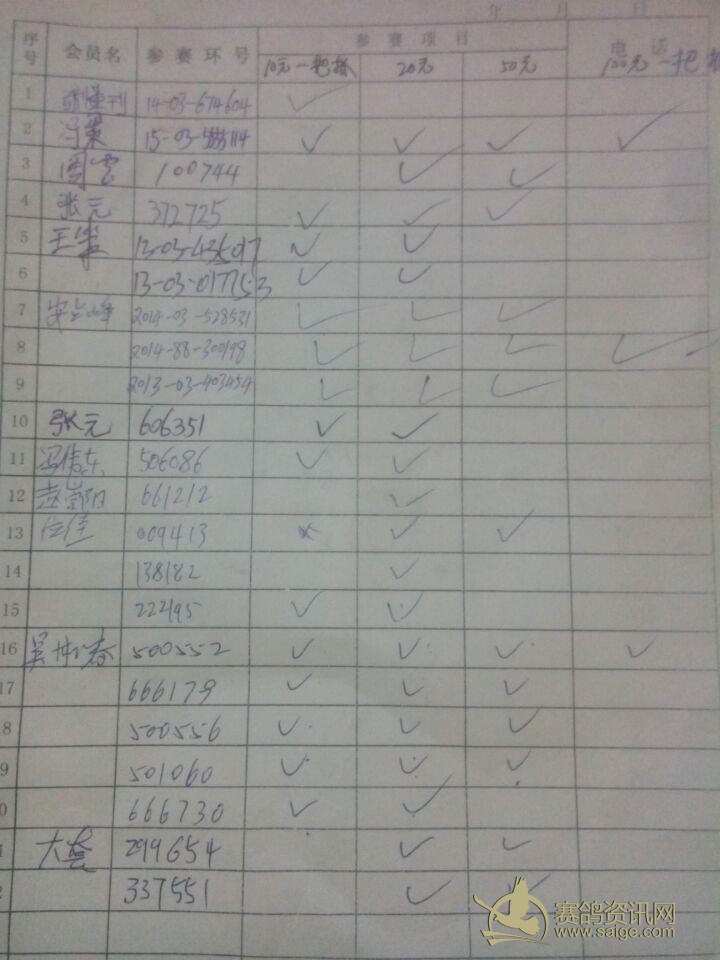 年 月 日
序号 会员名 参赛环号 参赛项目 电话
10元一把抓 20元 50元 100元一把抓
1 14-03-674604 ✓
2 冯策 15-03-114 ✓ ✓ ✓ ✓
3 周云 100744 ✓ ✓
4 张元 372725 ✓ ✓ ✓
5 13-03-435017 ✓ ✓
6 13-03-017753 ✓ ✓
7 2014-03-528531 ✓ ✓ ✓
8 2014-88-300198 ✓ ✓ ✓ ✓
9 2013-03-403454 ✓ ✓ ✓
10 张元 606351 ✓ ✓
11 506086 ✓ ✓
12 661212 ✓
13 009413 × ✓ ✓
14 138182 ✓
15 222195 ✓ ✓
16 500552 ✓ ✓ ✓ ✓
17 666179 ✓ ✓ ✓
8 500556 ✓ ✓ ✓
9 501060 ✓ ✓ ✓
0 666730 ✓ ✓
299654 ✓ ✓
337551 ✓ ✓
赛鸽资讯网
www.saige.com